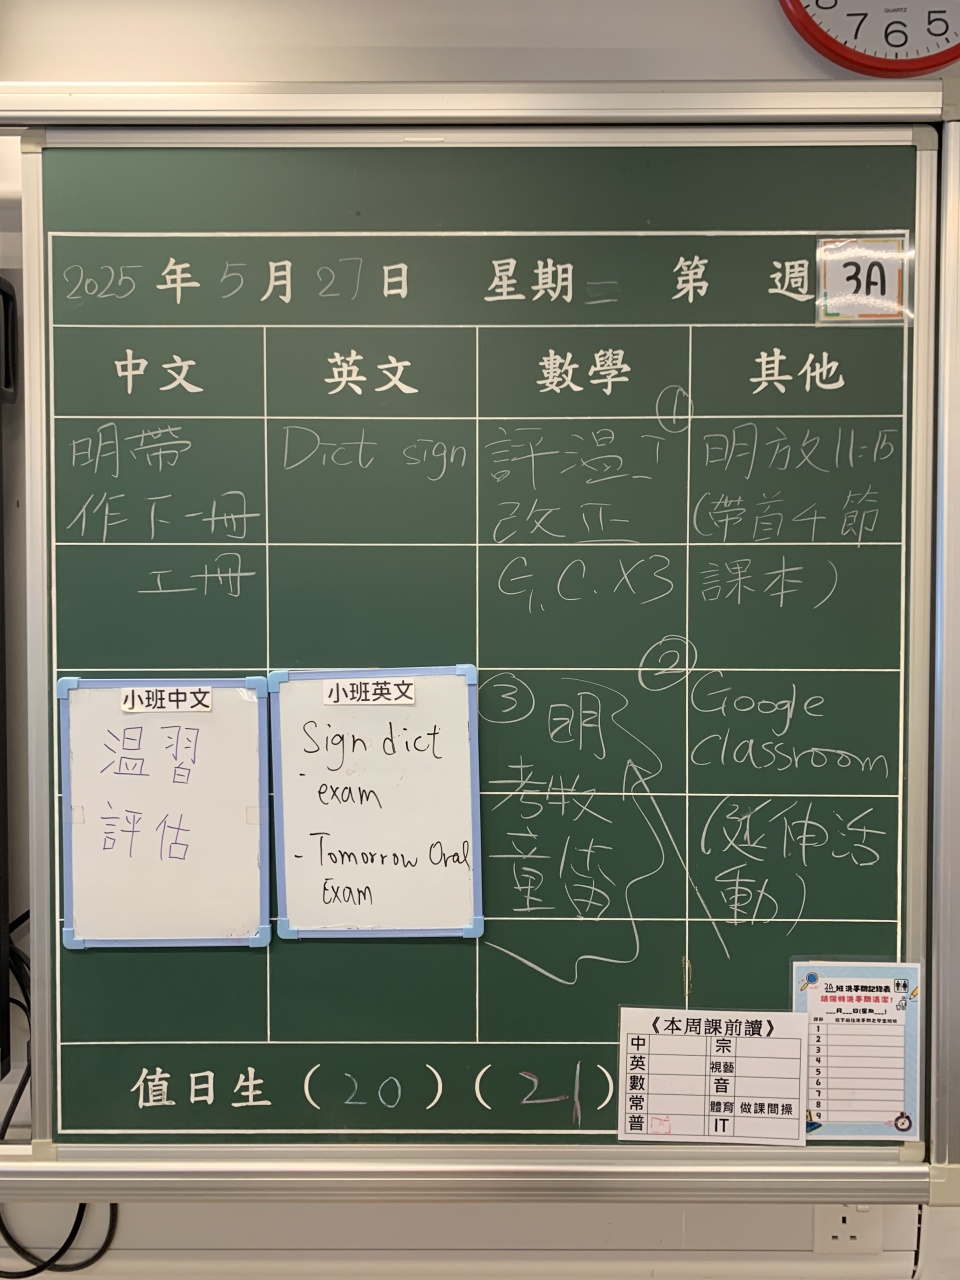 QUARTZ
8 7 6 5
2025年5月27日 星期二 第 週 3A
中文
英文
數學
其他
明帶
作下一冊
工冊
Dict sign
評溫工
改正
G.C. X3
①
明放11:15
(帶首4節
課本)
②
Google
Classroom
(延伸活
動)
③ 明
考牧
童笛
小班中文
溫習
評估
小班英文
Sign dict
- exam
- Tomorrow Oral
Exam
值日生 (20) (21)
《本周課前讀》
中 宗
英 視藝
數 音
常 體育 做課間操
普 IT
3A班洗手間記錄表
請保持洗手間清潔!
___月___日(星期___)
1
2
3
4
5
6
7
8
9